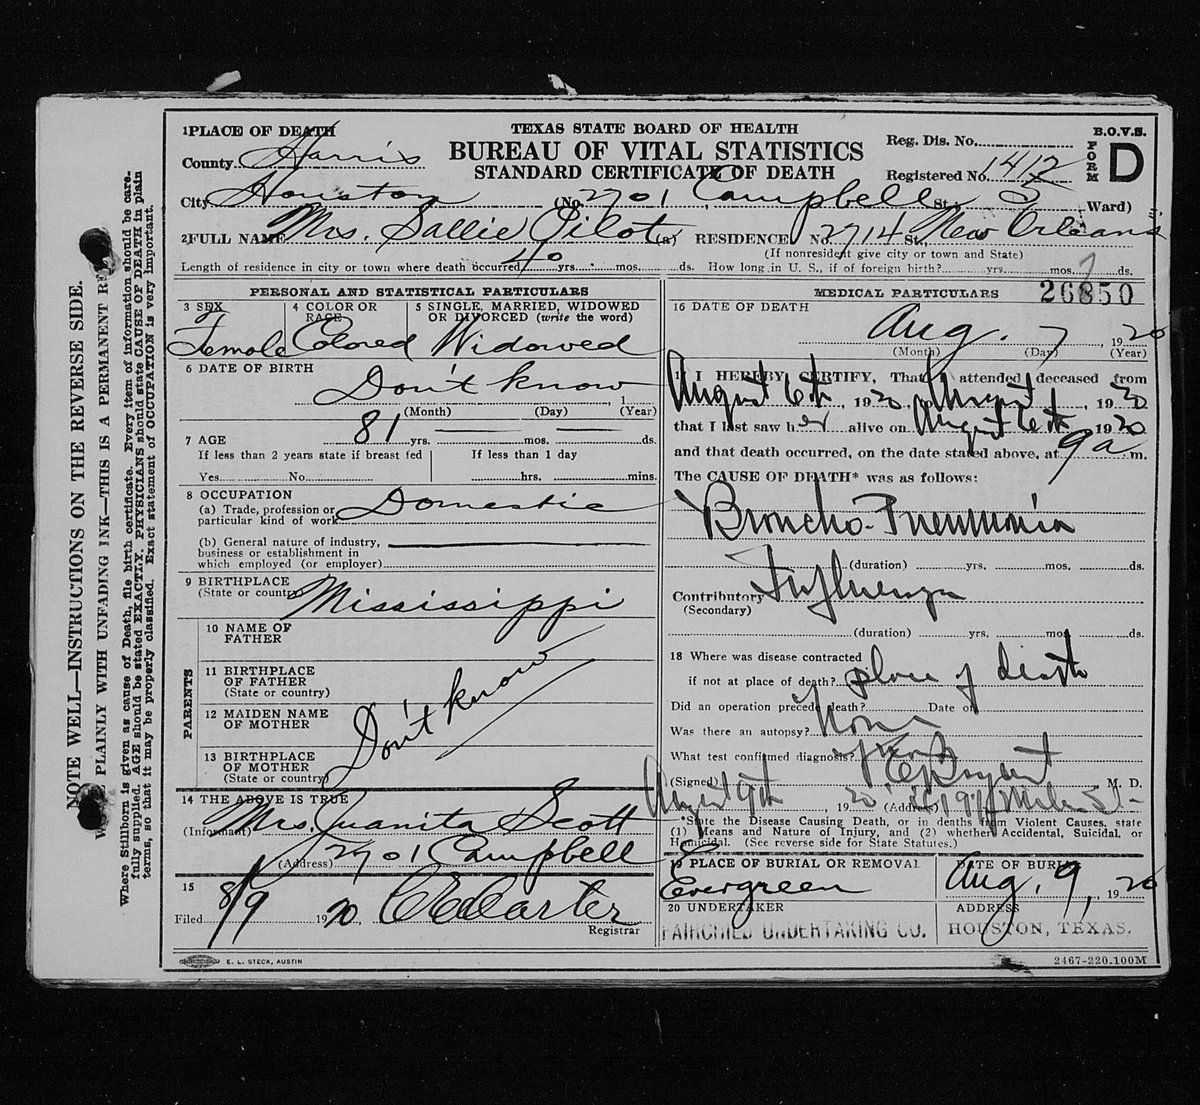 NOTE WELL—INSTRUCTIONS ON THE REVERSE SIDE.
PLAINLY WITH UNFADING INK—THIS IS A PERMANENT RE
Where Stillborn is given as cause of Death, file birth certificate. Every item of information should be care.
fully supplied. AGE should be stated EXACTLY. PHYSICIANS should state CAUSE OF DEATH in plain
terms, so that it may be properly classified. Exact statement of OCCUPATION is very important.
1 PLACE OF DEATH
County Harris
TEXAS STATE BOARD OF HEALTH
BUREAU OF VITAL STATISTICS
STANDARD CERTIFICATE OF DEATH
Reg. Dis. No.
Registered No. 1412
B.O.V.S.
FORM D
City Houston (No. 2701 Campbell St., 3 Ward)
2 FULL NAME Mrs. Sallie Pilot (a) RESIDENCE No. 2714 St., New Orleans
(If nonresident give city or town and State)
Length of residence in city or town where death occurred 40 yrs. mos. ds. How long in U. S., if of foreign birth? yrs. mos. ds.
26850
PERSONAL AND STATISTICAL PARTICULARS
3 SEX
Female
4 COLOR OR RACE
Colored
5 SINGLE, MARRIED, WIDOWED OR DIVORCED (write the word)
Widowed
6 DATE OF BIRTH
Don't know, 1
(Month) (Day) (Year)
7 AGE 81 yrs. mos. ds.
If less than 2 years state if breast fed
Yes No
If less than 1 day
hrs. mins.
8 OCCUPATION
(a) Trade, profession or
particular kind of work Domestic
(b) General nature of industry,
business or establishment in
which employed (or employer)
9 BIRTHPLACE
(State or country) Mississippi
PARENTS
10 NAME OF FATHER
11 BIRTHPLACE OF FATHER
(State or country)
12 MAIDEN NAME OF MOTHER
13 BIRTHPLACE OF MOTHER
(State or country)
Don't know
14 THE ABOVE IS TRUE
(Informant) Mrs. Juanita Scott
(Address) 2701 Campbell
15
Filed 8/9 1920
Carter
Registrar
MEDICAL PARTICULARS
16 DATE OF DEATH
Aug. 7, 1920
(Month) (Day) (Year)
I HEREBY CERTIFY, That attended deceased from
August 6th, 1920, August, 1920
that I last saw her alive on August 6th 1920
and that death occurred, on the date stated above, at 9 a m.
The CAUSE OF DEATH* was as follows:
Broncho-Pneumonia
(duration) yrs. mos. ds.
Contributory Influenza
(Secondary)
(duration) yrs. mos. ds.
18 Where was disease contracted
if not at place of death? place of death
Did an operation precede death? Date of
Was there an autopsy? None
What test confirmed diagnosis?
(Signed) M. D.
August 9th 1920 (Address)
*State the Disease Causing Death, or in deaths from Violent Causes, state
(1) Means and Nature of Injury, and (2) whether Accidental, Suicidal, or
Homicidal. (See reverse side for State Statutes.)
19 PLACE OF BURIAL OR REMOVAL
Evergreen
DATE OF BURIAL
Aug. 9, 1920
20 UNDERTAKER
FAIRCHILD UNDERTAKING CO.
ADDRESS
HOUSTON, TEXAS.
E. L. STECK, AUSTIN
2467-220.100M